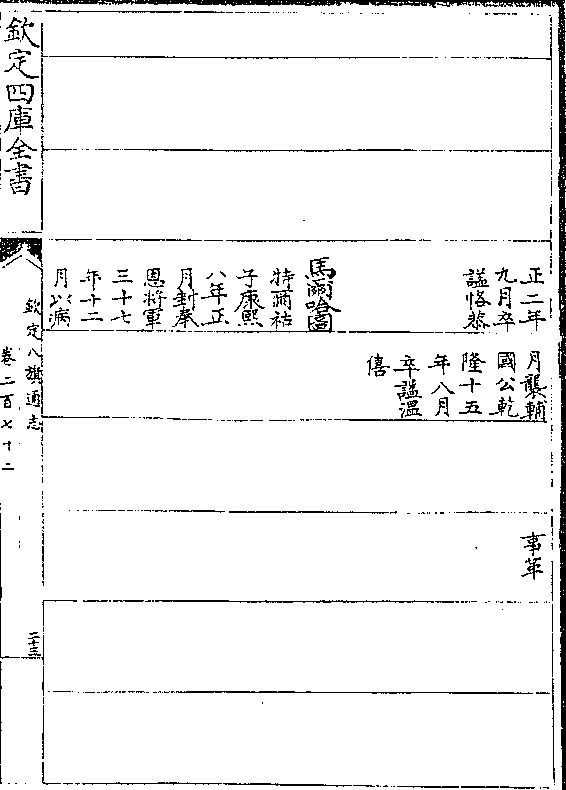 正二年
九月卒
諡恪恭
馬爾哈圖
特爾祜
子康熙
八年正
月封奉
恩將軍
三十七
年十二
月以病
月襲輔
國公乾
隆十五
年八月
卒諡溫
僖
事革
欽定四庫全書
欽定八旗通志
卷二百七十二
二十三